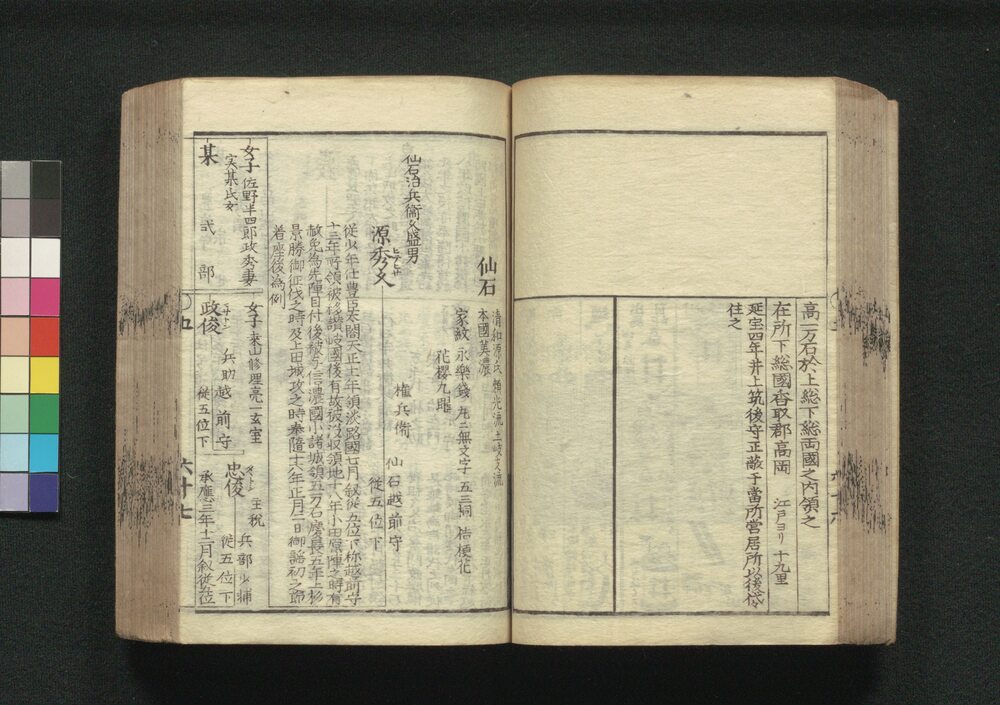 高一万石於上総下総両國之内領之
在所下総國香取郡高岡 江戸ヨリ十九里
延宝四年井上筑後守正敵于當所営居所以後代
住之
仙石
清和源氏 頼光流 土岐支流
本國美濃
家紋 永樂錢 丸ニ無文字 五三桐 桔梗花
花櫻九曜
仙石治兵衞久盛男
源秀久
ヒテヒサ
権兵衞
仙石越前守
従五位下
従少年仕豊臣太閤天正十一年領淡路國七月叙従五位下称越前守
十三年所領被移讃岐國後有故被没収領地十八年小田原陣之時有
赦免為先陣目付後被与信濃國小諸城領五万石慶長五年上杉
景勝御征伐之時及上田城攻之時奉随十六年正月二日御謡初之節
着座後為例
女子 佐野半四郎政秀妻
実某氏女
某 式部
女子 来山修理亮一玄室
政俊
兵助 越前守
従五位下
忠俊
主税
兵部少輔
従五位下
承應三年十二月叙従五位
六十七